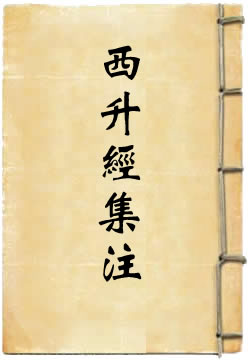 西升經集注